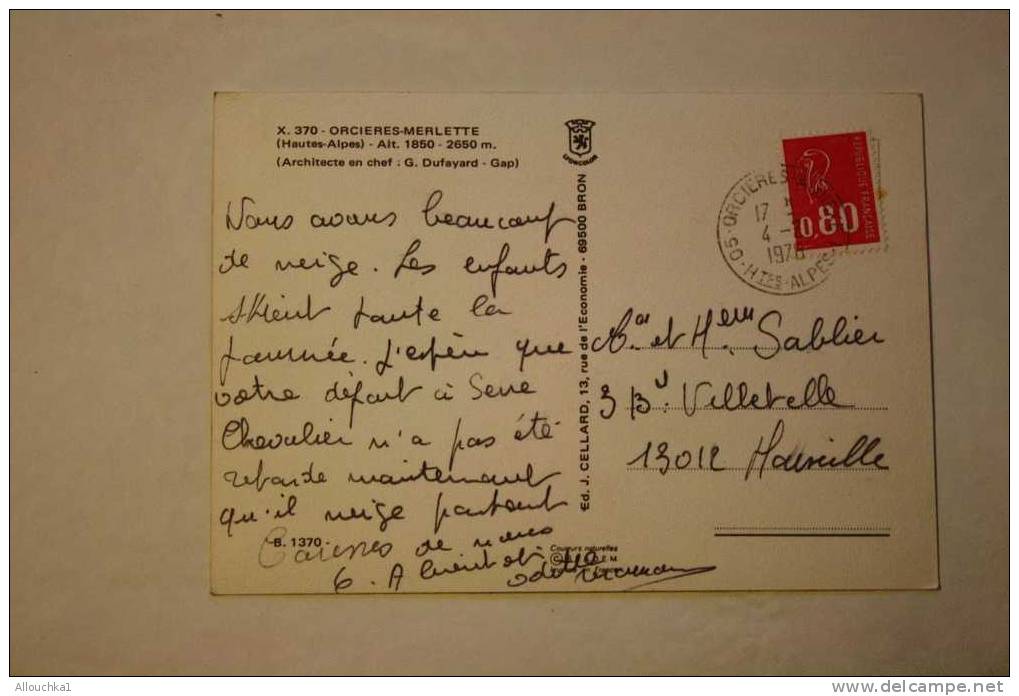 X. 370 - ORCIERES-MERLETTE
(Hautes-Alpes) - Alt. 1850 - 2650 m.
(Architecte en chef : G. Dufayard - Gap)
Nous avons beaucoup
de neige. Les enfants
skient toute la
journée. J'espère que
votre départ à Serre
Chevalier n'a pas été
retardé maintenant
qu'il neige partout
B. 1370
Caresses de nous
6. A bientôt
Odette
Ed. J. CELLARD, 13, rue de l'Economie - 69500 BRON
Couleurs naturelles
REPUBLIQUE FRANCAISE
0,80
05-ORCIERES
17
4 -
1976
HTES-ALPES
et Sablier
3 Bd Villetelle
13012 Marseille
Allouchka1
www.delcampe.net